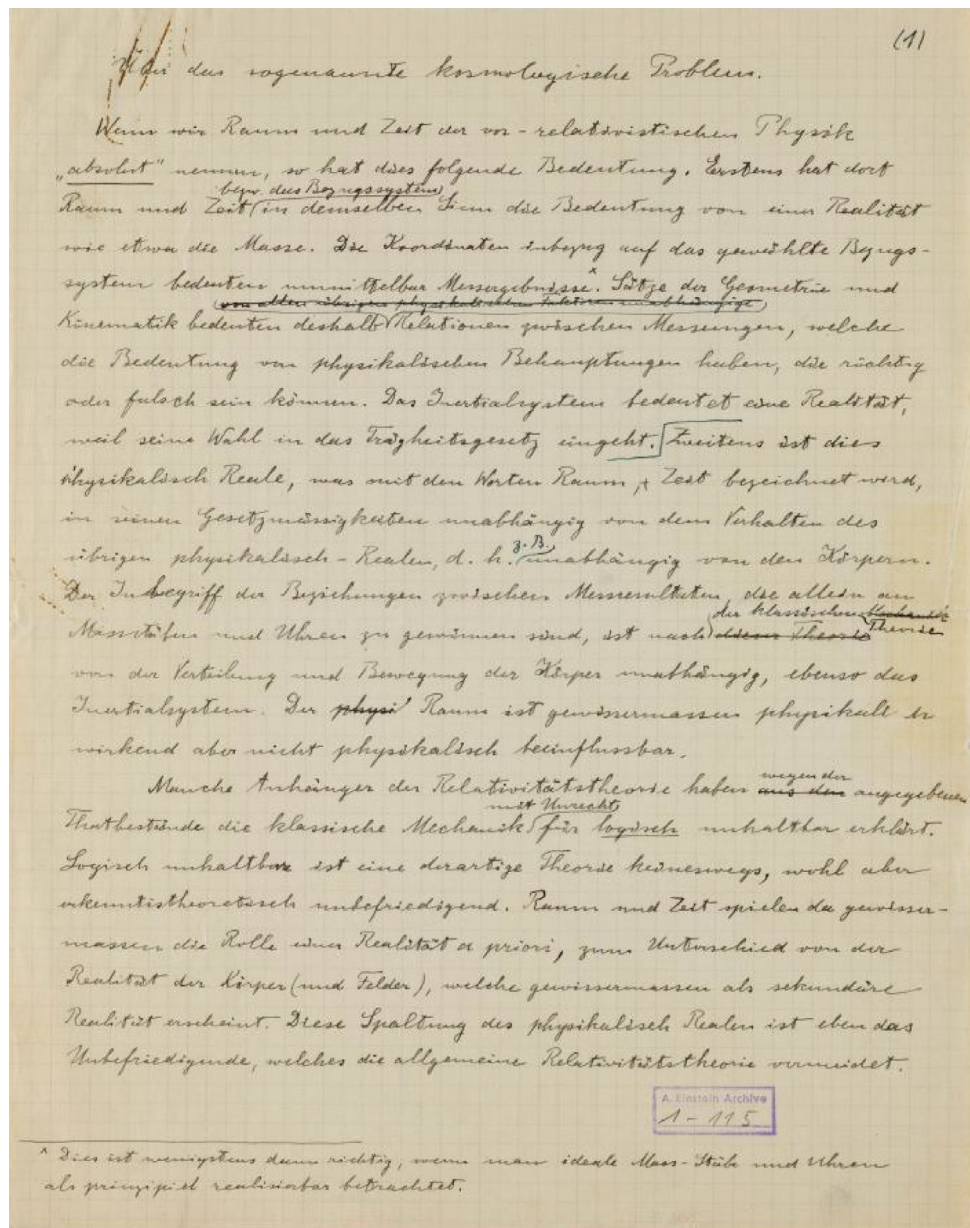 (1)
Über das sogenannte kosmologische Problem.
Wenn wir Raum und Zeit der vor-relativistischen Physik
„absolut" nennen, so hat dies folgende Bedeutung. Erstens hat dort
bezw. das Bezugssystem
Raum und Zeit in demselben Sinn die Bedeutung von einer Realität
wie etwa die Masse. Die Koordinaten inbezug auf das gewählte Bezugs-
system bedeuten unmittelbar Messergebnisse.ˣ Sätze der Geometrie und
von allen übrigen physikalischen Faktoren unabhängige
Kinematik bedeuten deshalb Relationen zwischen Messungen, welche
die Bedeutung von physikalischen Behauptungen haben, die richtig
oder falsch sein können. Das Inertialsystem bedeutet eine Realität,
weil seine Wahl in das Trägheitsgesetz eingeht. Zweitens ist dies
physikalisch Reale, was mit den Worten Raum, + Zeit bezeichnet wird,
in seinen Gesetzmässigkeiten unabhängig von dem Verhalten des
z. B.
übrigen physikalisch-Realen, d. h. unabhängig von den Körpern.
Der Inbegriff der Beziehungen zwischen Messresultaten, die allein an
der klassischen Mechanik
Massstäben und Uhren zu gewinnen sind, ist nach dieser Theorie Theorie
von der Verteilung und Bewegung der Körper unabhängig, ebenso das
Inertialsystem. Der physi Raum ist gewissermassen physikall
wirkend aber nicht physikalisch beeinflussbar.
wegen der
Manche Anhänger der Relativitätstheorie haben aus den angegebenen
mit Unrecht
Thatbestände die klassische Mechanik für logisch unhaltbar erklärt.
Logisch unhaltbar ist eine derartige Theorie keineswegs, wohl aber
erkenntistheoretisch unbefriedigend. Raum und Zeit spielen da gewisser-
massen die Rolle einer Realität a priori, zum Unterschied von der
Realität der Körper (und Felder), welche gewissermassen als sekundäre
Realität erscheint. Diese Spaltung des physikalisch Realen ist eben das
Unbefriedigende, welches die allgemeine Relativitätstheorie vermeidet.
A. Einstein Archive
1-115
ˣ Dies ist wenigstens dann richtig, wenn man ideale Mass-Stäbe und Uhren
als prinzipiel realisierbar betrachtet.